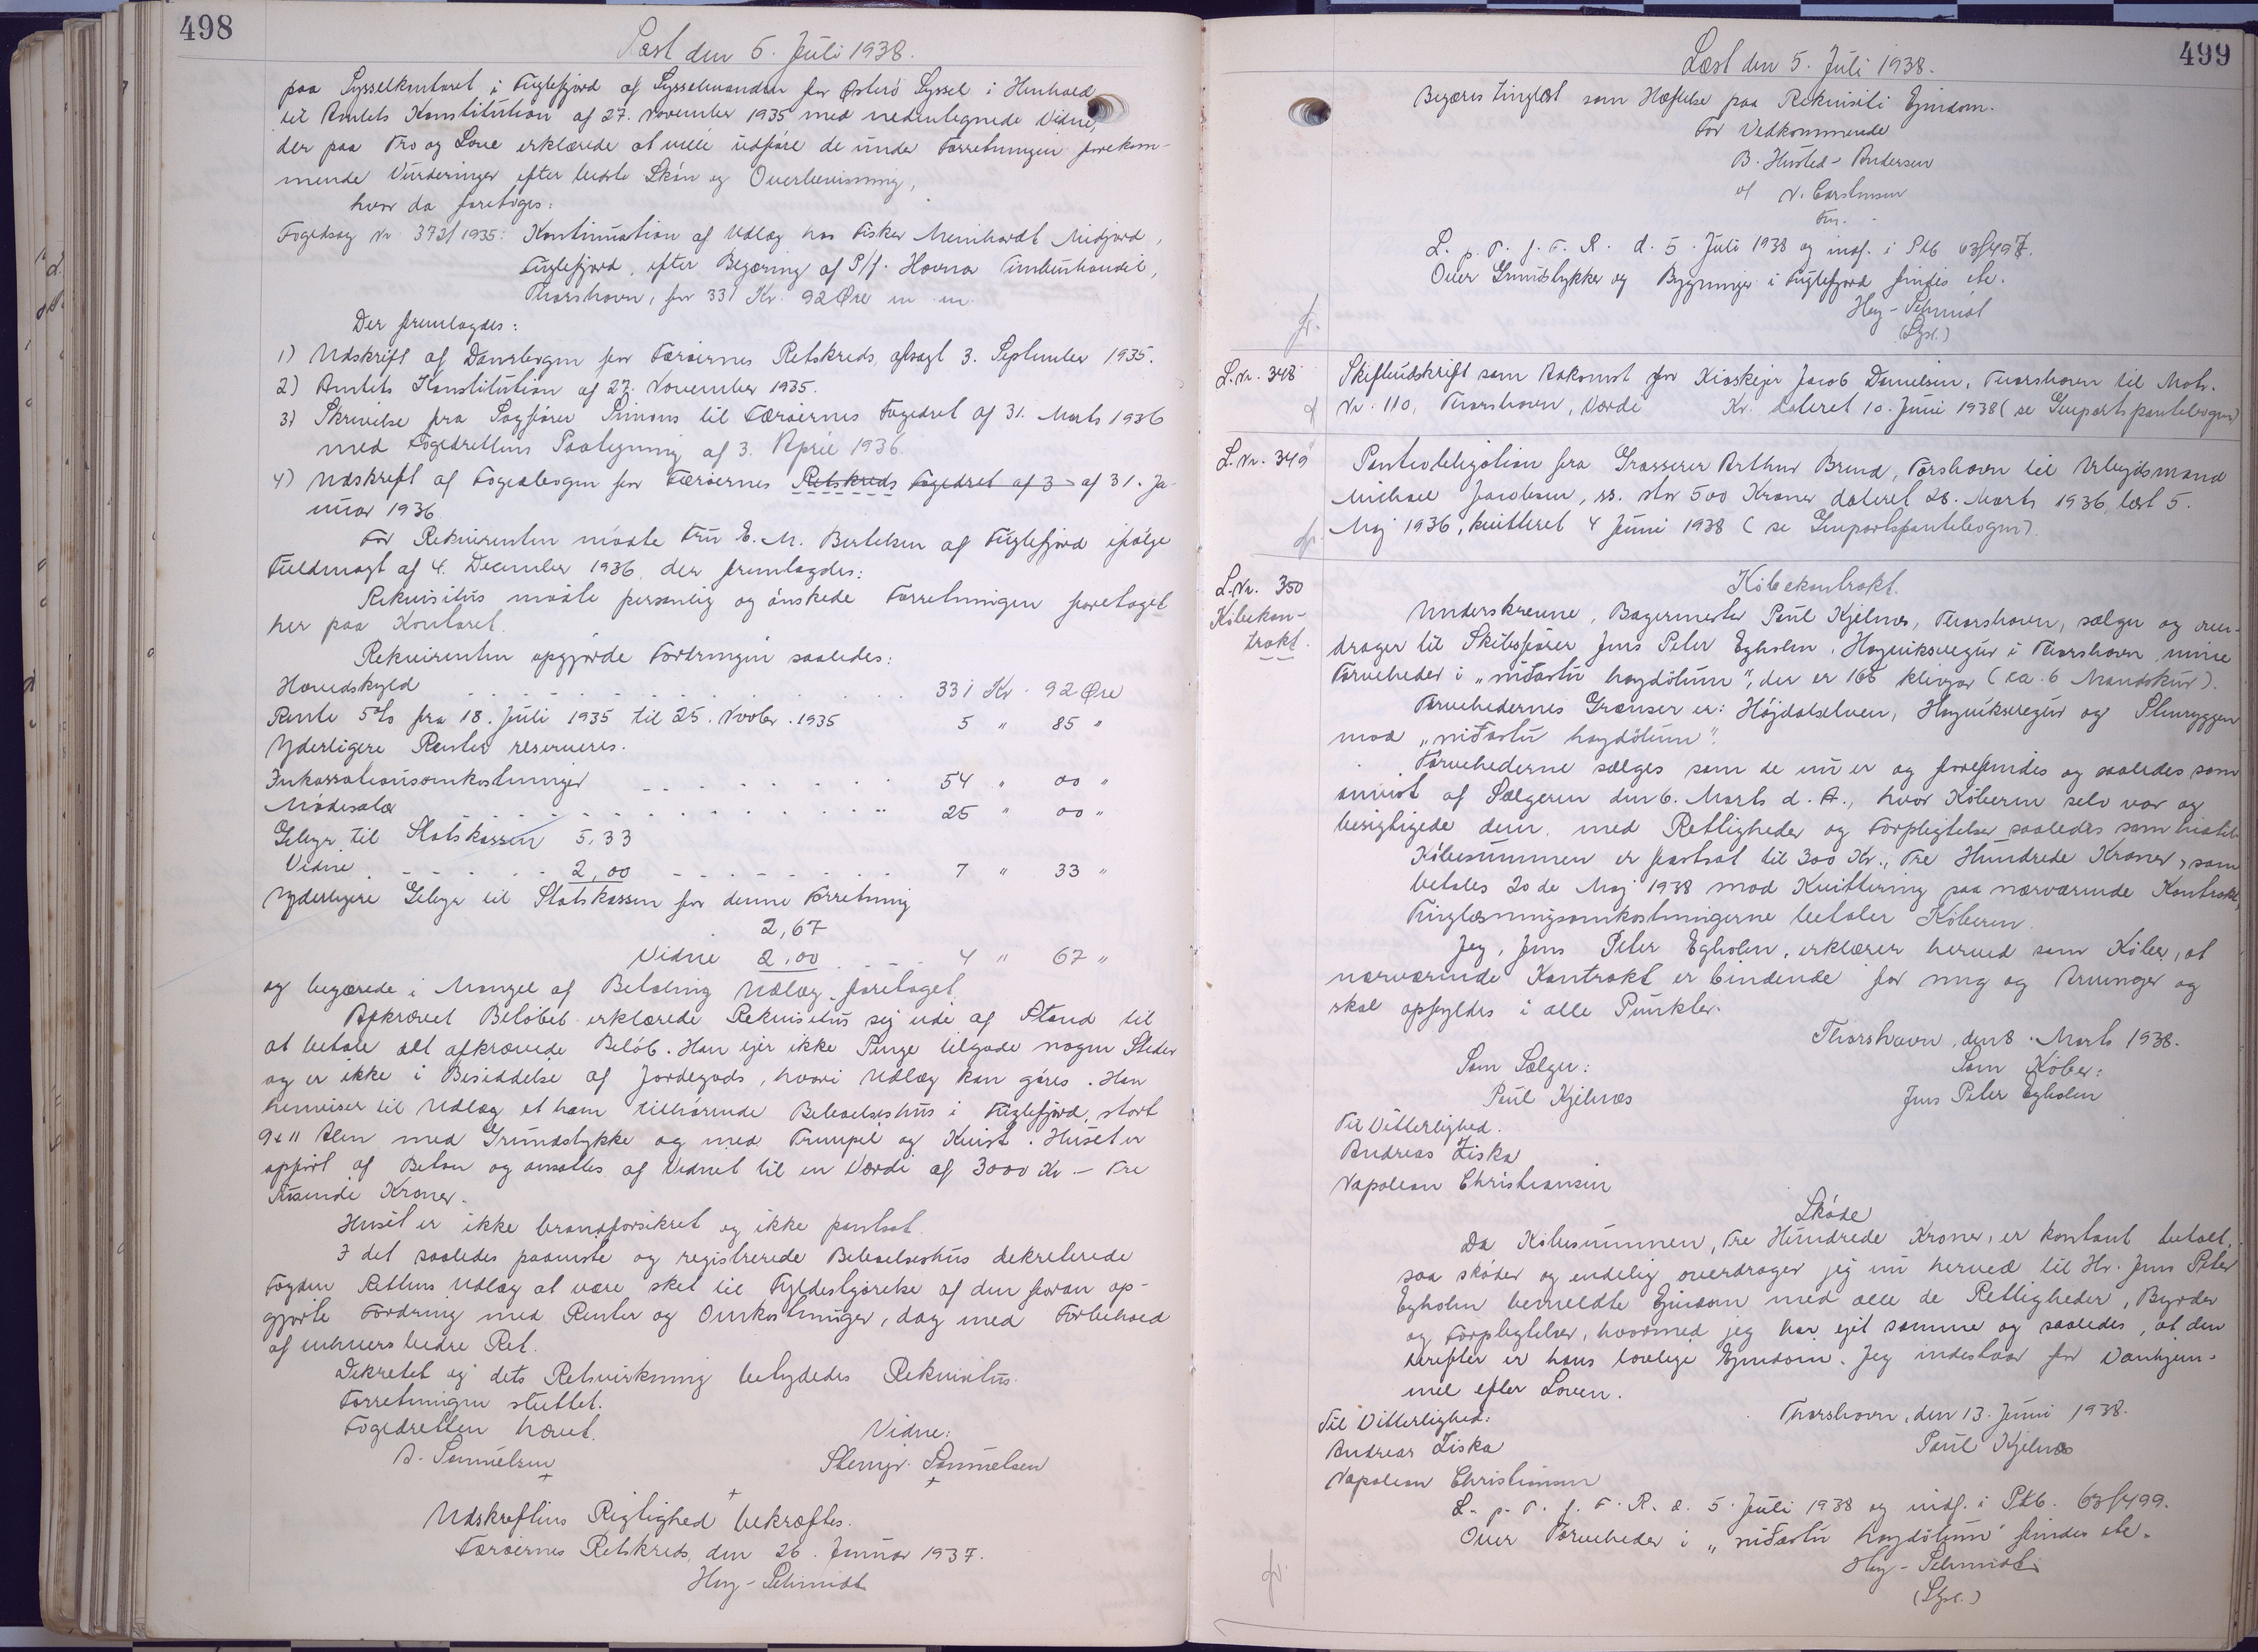 498
Læst den 6. Juli 1938.
paa Sysselkontoret i Fuglefjord af Sysselmanden for Østerø Syssel i Henhold
til Amtets Konstitution af 27. November 1935 med nedentegnede Vidne,
der paa Tro og Love erklærede at ville udføre de under Forretningen forekom-
mende Vurderinger efter bedste Skøn og Overbevisning,
hvor da foretoges:
Fogedsag Nr. 372/1935: Kontinuation af Udlæg hos Fisker Meinhardt Midjord,
Fuglefjord, efter Begæring af P/f. Havnar Timburhandil,
Thorshavn, for 331 Kr. 92 Øre m. m.
Der fremlagdes:
1) Udskrift af Domsbogen for Færøernes Retskreds, afsagt 3. September 1935.
2) Amtets Konstitution af 27. November 1935.
3) Skrivelse fra Sagfører Simons til Færøernes Fogedret af 31. Marts 1936
med Fogedrettens Paategning af 3. April 1936.
4) Udskrift af Fogedbogen for Færøernes Retskreds Fogedret af 3 af 31. Ja-
nuar 1936.
For Rekvirenten mødte Fru E. M. Bertelsen af Fuglefjord ifølge
Fuldmagt af 4. December 1936, der fremlagdes:
Rekvisitus mødte personlig og ønskede Forretningen foretaget
her paa Kontoret.
Rekvirenten opgjorde Fordringen saaledes:
Hovedskyld 331 Kr. 92 Øre
Rente 5% fra 18. Juli 1935 til 25. Novbr. 1935 5 " 85 "
Yderligere Renter reserveres.
Inkassationsomkostninger 54 " 00 "
Mødesalær 25 " 00 "
Gebyr til Statskassen 5,33
Vidne 2,00 7 " 33 "
Yderligere Gebyr til Statskassen for denne Forretning
2,67
Vidne 2,00 4 " 67 "
og begærede i Mangel af Betaling Udlæg foretaget.
Afkrævet Beløbet erklærede Rekvisitus sig ude af Stand til
at betale det afkrævede Beløb. Han ejer ikke Penge tilgode nogen Steder
og er ikke i Besiddelse af Jordegods, hvori Udlæg kan gøres. Han
henviser til Udlæg et ham tilhørende Beboelseshus i Fuglefjord, stort
9 x 11 Alen med Grundstykke og med Frempil og Kvist. Huset er
opført af Beton og ansattes af Vidnet til en Værdi af 3000 Kr. - Tre
Tusinde Kroner.
Huset er ikke brandforsikret og ikke pantsat.
I det saaledes paaviste og registrerede Beboelseshus dekreterede
Fogden Rettens Udlæg at være sket til Fyldestgørelse af den foran op-
gjorte Fordring med Renter og Omkostninger, dog med Forbehold
af enhvers bedre Ret.
Dekretet og dets Retsvirkning betydedes Rekvisitus.
Forretningen sluttet.
Fogedretten hævet. Vidne:
A. Samuelsen Stemgr. Samuelsen
Udskriftens Rigtighed bekræftes.
Færøernes Retskreds, den 26. Januar 1937.
Hey-Schmidt
499
Læst den 5. Juli 1938.
Begæres tinglæst som Hæftelse paa Rekvisiti Ejendom.
For Vedkommende
B. Husted-Andersen
v/ N. Carstensen
Fm.
L. p. T. f. F. R. d. 5. Juli 1938 og indf. i Ptb 63f497.
Over Grundstykker og Bygninger i Fuglefjord findes etc.
Hey-Schmidt
(Sgsl.)
L. Nr. 348 Skifteudskrift som Adkomst for Kioskejer Jacob Danielsen, Thorshavn til Matr.
Nr. 110, Thorshavn, Værdi Kr. dateret 10. Juni 1938 (se Genpartspantebogen)
L. Nr. 349 Panteobligation fra Grosserer Arthur Brend, Torshavn til Arbejdsmand
Michael Jacobsen, ss. stor 500 Kroner dateret 28. Marts 1936, læst 5.
Maj 1936, kvitteret 4 Juni 1938 (se Genpartspantebogen).
L. Nr. 350
Købekon-
trakt.
Købekontrakt.
Underskrevne, Bagermester Poul Kjelnæs, Thorshavn, sælger og over-
drager til Skibsfører Jens Peter Egholm, Hoyviksvegur i Thorshavn mine
Tørveheder i "niðastu hoydølum", der er 165 klivjar (ca. 6 Mandskur).
Tørvehedernes Grænser er: Højdalselven, Hoyviksvegur og Stenryggen
mod "niðastu hoydølum".
Tørvehederne sælges som de nu er og forefindes og saaledes som
anvist af Sælgeren den 6. Marts d. A., hvor Køberen selv var og
besigtigede dem, med Rettigheder og Forpligtelser saaledes som hidtil.
Købesummen er fastsat til 300 Kr., Tre Hundrede Kroner, som
betales 20de Maj 1938 mod Kvittering paa nærværende Kontrakt,
Tinglæsningsomkostningerne betaler Køberen.
Jeg, Jens Peter Egholm, erklærer herved som Køber, at
nærværende Kontrakt er bindende for mig og Arvinger og
skal opfyldes i alle Punkter.
Thorshavn, den 8. Marts 1938.
Som Sælger: Som Køber:
Poul Kjelnæs Jens Peter Egholm
Til Vitterlighed.
Andreas Ziska
Napoleon Christiansen
Skøde
Da Købesummen, Tre Hundrede Kroner, er kontant betalt,
saa skøder og endelig overdrager jeg nu herved til Hr. Jens Peter
Egholm bemeldte Ejendom med alle de Rettigheder, Byrder
og Forpligtelser, hvormed jeg har ejet samme og saaledes, at den
herefter er hans lovlige Ejendom. Jeg indestaar for Vanhjem-
mel efter Loven.
Til Vitterlighed: Thorshavn, den 13. Juni 1938.
Andreas Ziska Poul Kjelnæs
Napoleon Christiansen
L. p. T. f. F. R. d. 5. Juli 1938 og indf. i Ptb. 63f499.
Over Tørveheder i "niðastu hoydølum" findes etc.
Hey-Schmidt
(Sgsl.)